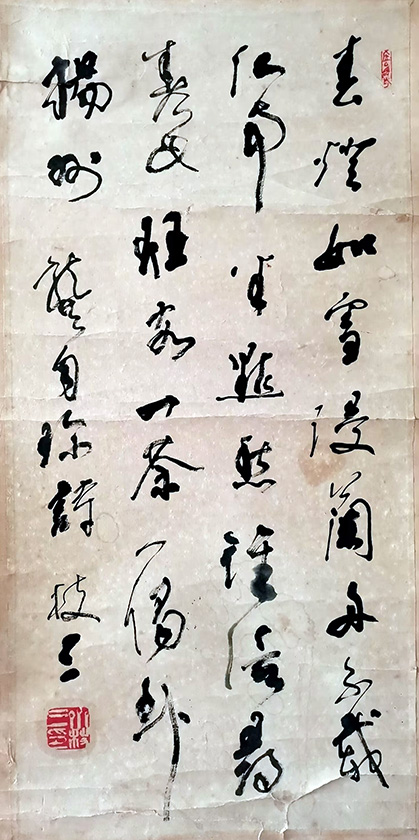 春燈如雪浸蘭舟不載
江南半點愁誰信尋
春此狂客一茶一偈到
揚州 龔自珍詩 枝三